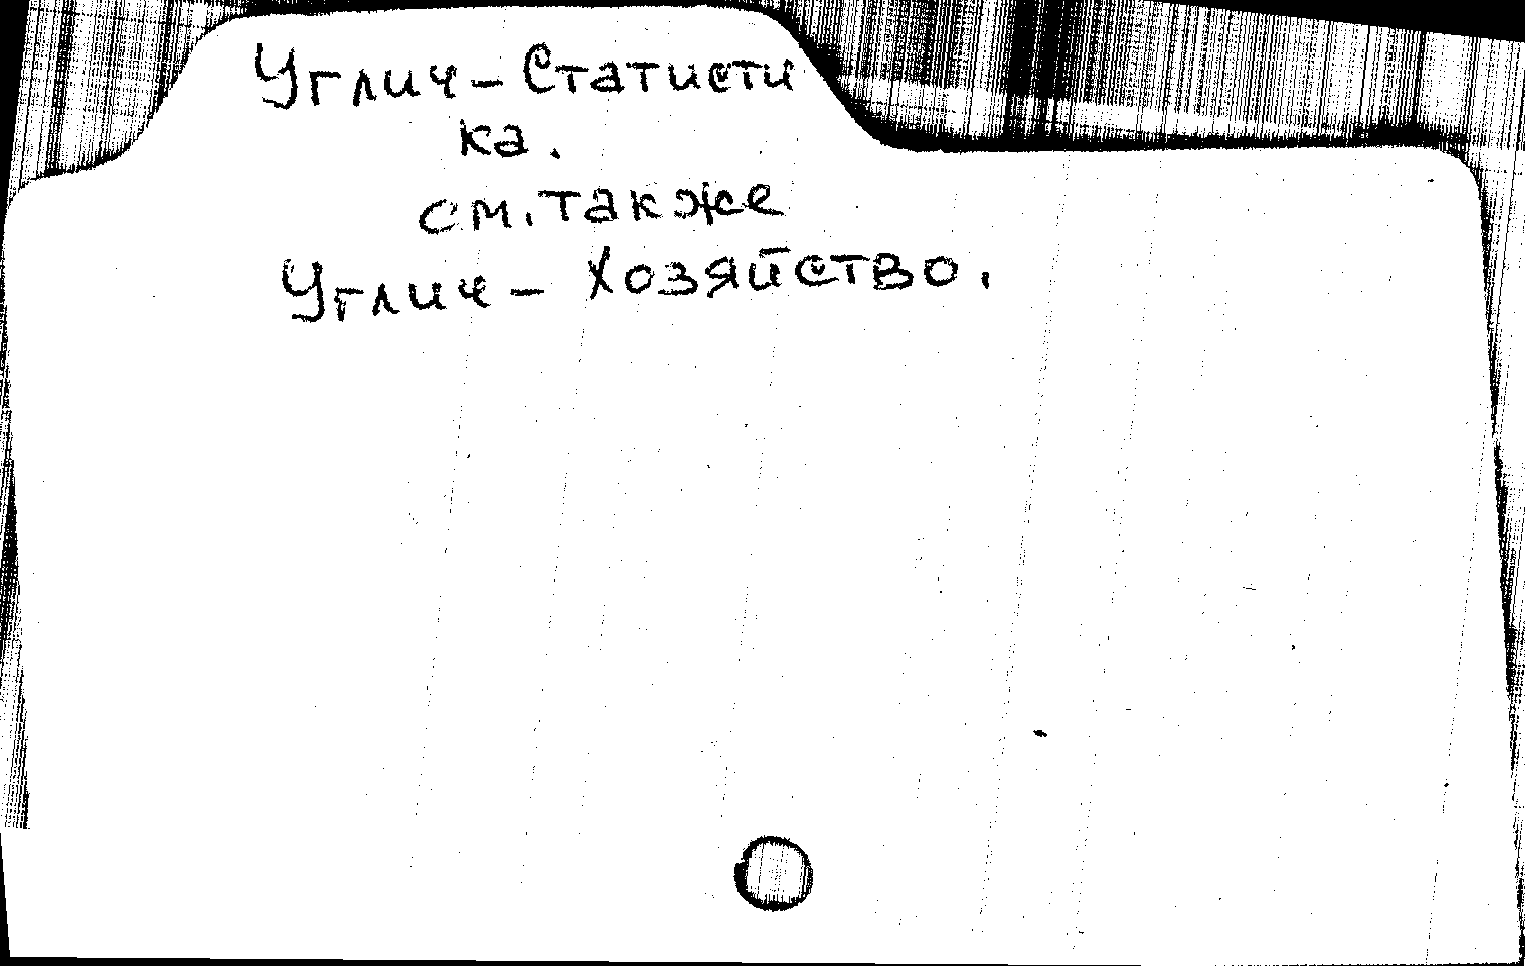 Углич-Статисти
ка.
см. также
Углич - Хозяйство.